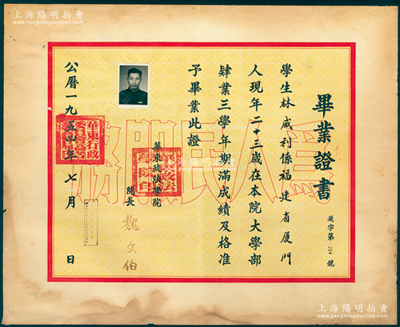 上海陽明拍賣
www.yangmingauction.com
畢業證書
政字第214號
學生林威利係福建省厦門
人現年二十三歲在本院大學部
肄業三學年期滿成績及格准
予畢業此證
華東政法學院
院長 魏文伯
公曆一九五四年七月 日
為人民服務
上海陽明拍賣
www.yangmingauction.com